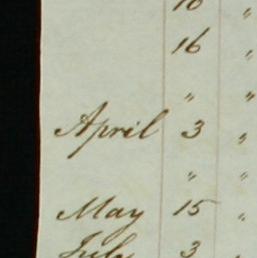 16 "
16 "
" "
April 3 "
" "
May 15 "
July 3 "